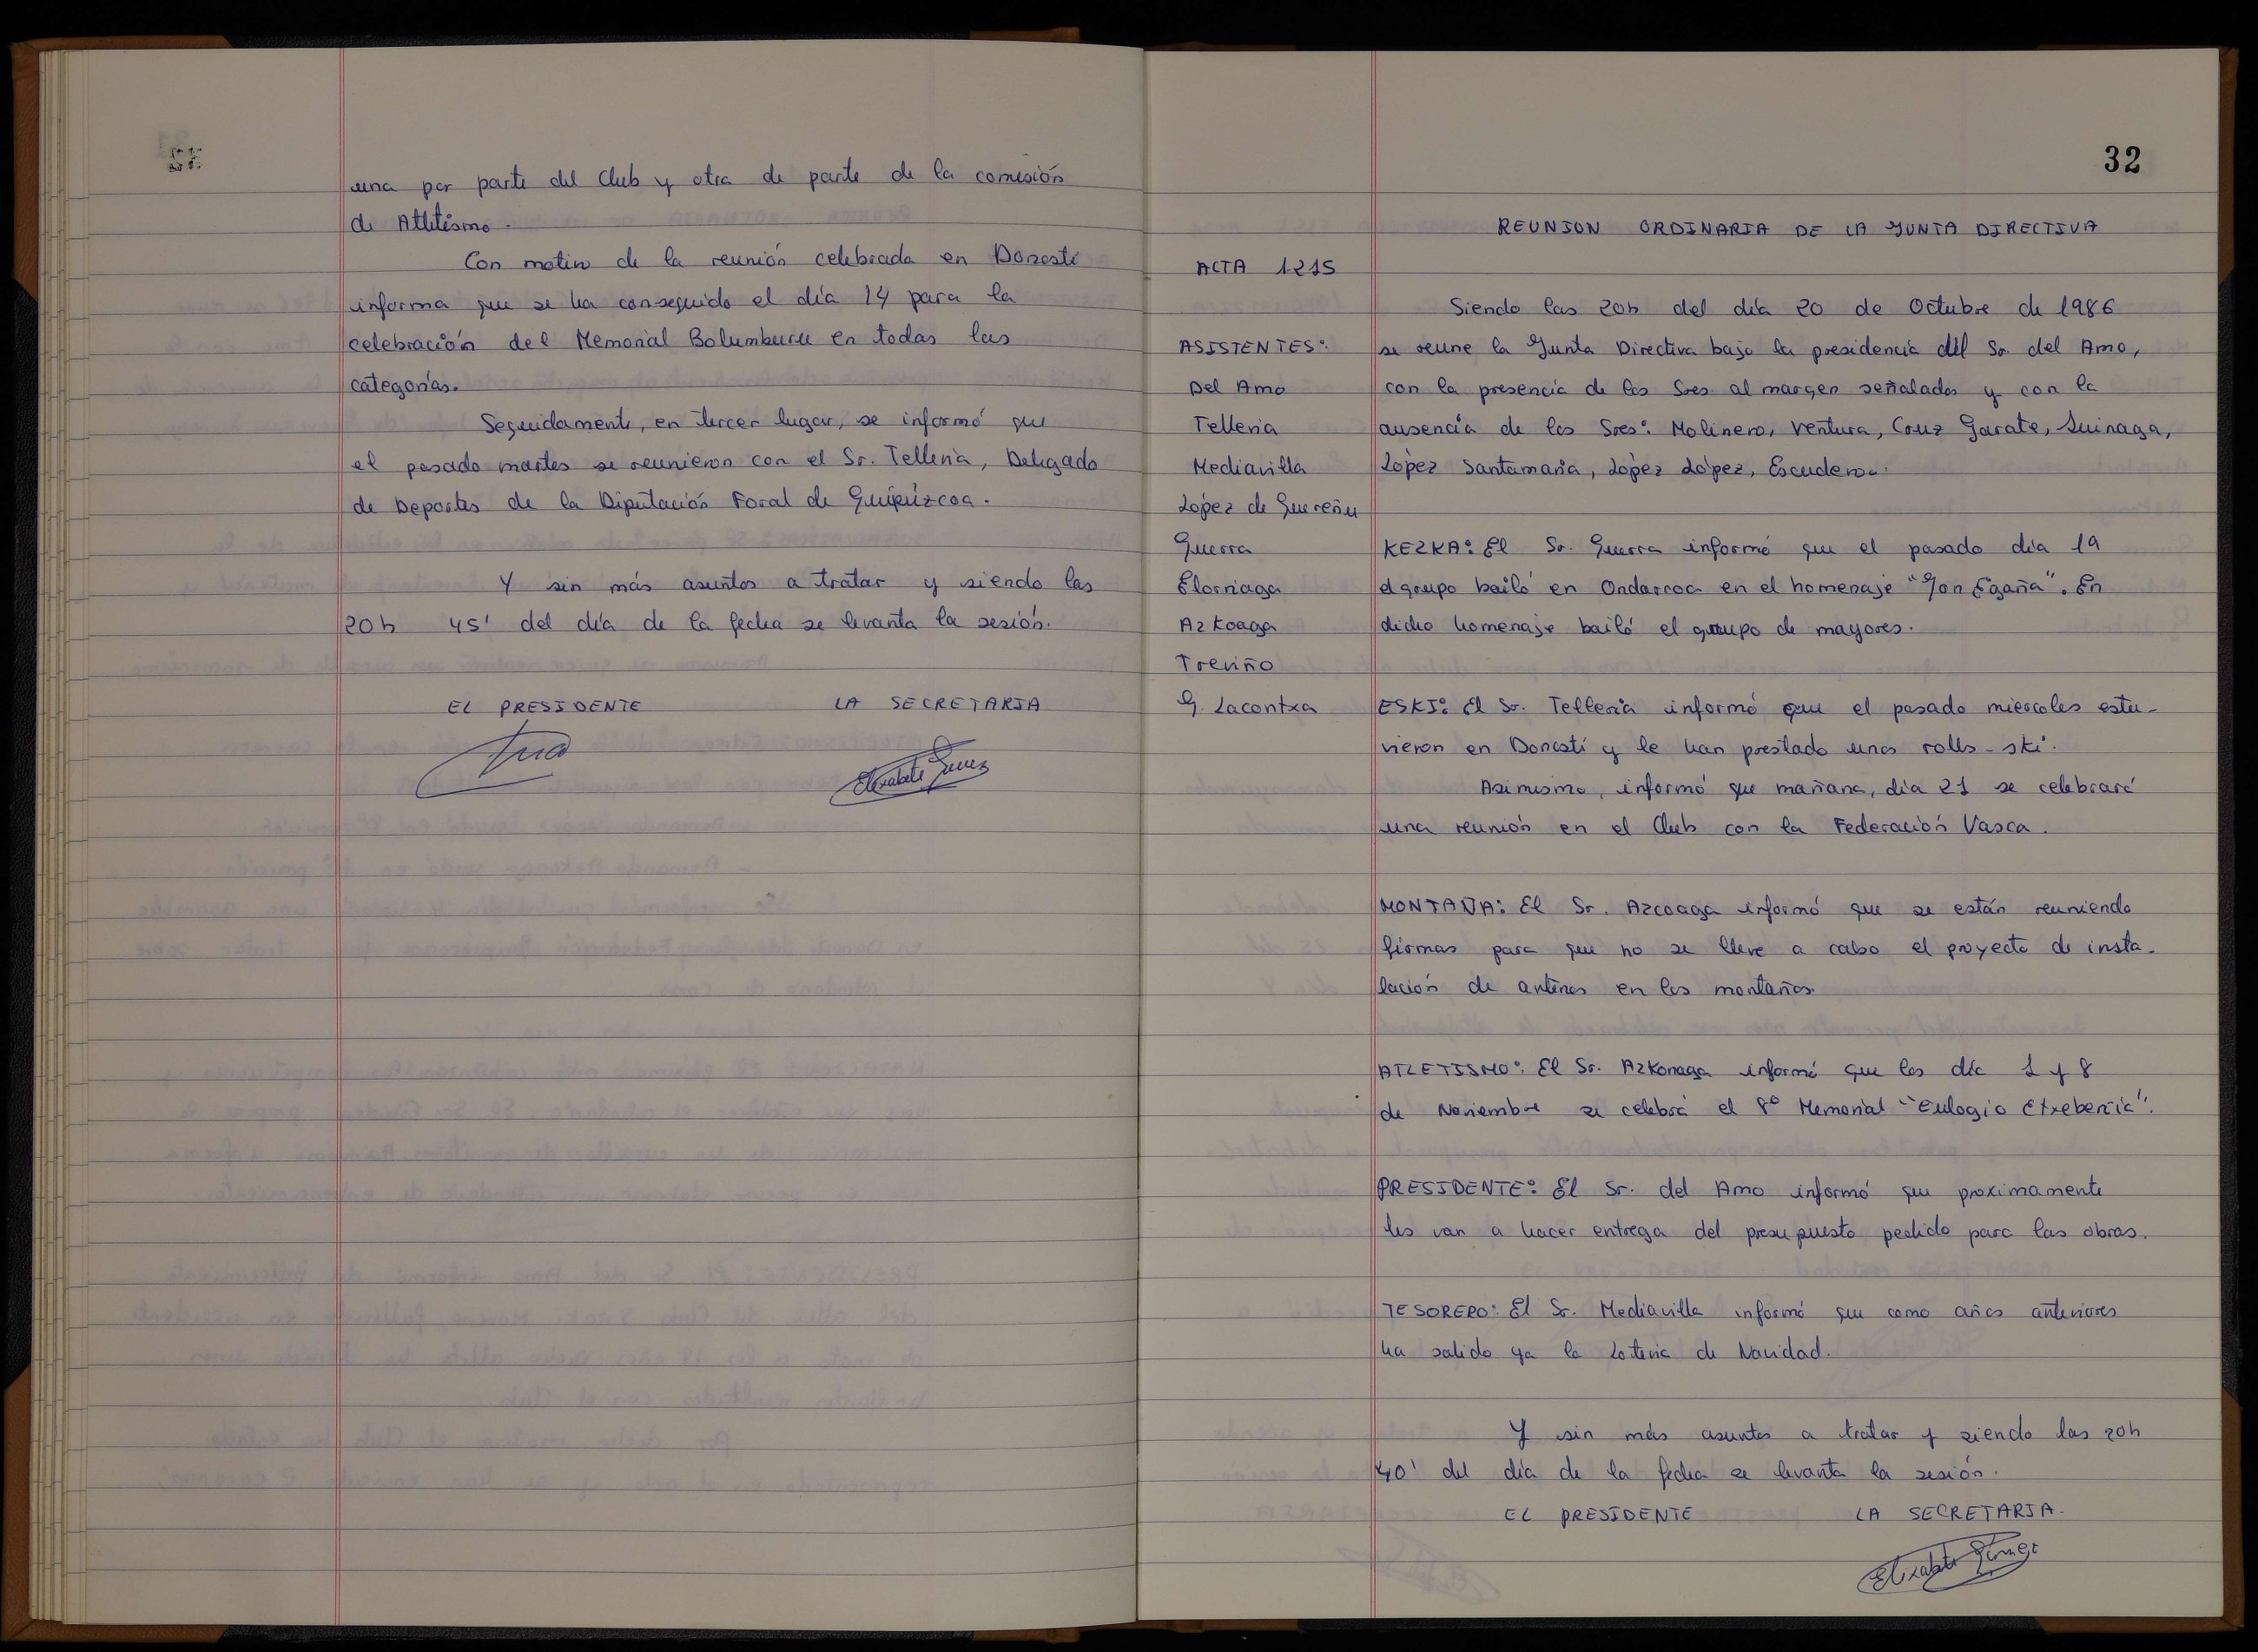 una por parte del Club y otra de parte de la comisión
de Atletismo.
Con motivo de la reunión celebrada en Donosti
informa que se ha conseguido el día 14 para la
celebración del Memorial Bolumburu en todas las
categorías.
Seguidamente, en tercer lugar, se informó que
el pasado martes se reunieron con el Sr. Telleria, Delegado
de Deportes de la Diputación Foral de Guipúzcoa.
Y sin más asuntos a tratar y siendo las
20h 45' del día de la fecha se levanta la sesión.
EL PRESIDENTE LA SECRETARIA
Elixabete
32
REUNION ORDINARIA DE LA JUNTA DIRECTIVA
ACTA 1215
Siendo las 20h del día 20 de Octubre de 1986
se reune la Junta Directiva bajo la presidencia del Sr. del Amo,
con la presencia de los Sres. al margen señalados y con la
ausencia de los Sres: Molinero, Ventura, Cruz Garate, Suinaga,
López Santamaría, López López, Escudero.
ASISTENTES:
Del Amo
Telleria
Mediavilla
López de Guereñu
Guerra
Elorriaga
Azkoaga
Treviño
G. Lacontxa
KEZKA: El Sr. Guerra informó que el pasado día 19
el grupo bailó en Ondarroa en el homenaje "Jon Egaña". En
dicho homenaje bailó el grupo de mayores.
ESKI: El Sr. Telleria informó que el pasado miercoles estu-
vieron en Donosti y le han prestado unos rolls-ski.
Asimismo, informó que mañana, día 21 se celebrará
una reunión en el Club con la Federación Vasca.
MONTAÑA: El Sr. Azcoaga informó que se están reuniendo
firmas para que no se lleve a cabo el proyecto de insta-
lación de antenas en los montañas.
ATLETISMO: El Sr. Azkonaga informó que los día 1 y 8
de Noviembre se celebrá el 8º Memorial "Eulogio Etxeberria".
PRESIDENTE: El Sr. del Amo informó que proximamente
les van a hacer entrega del presupuesto pedido para las obras.
TESORERO: El Sr. Mediavilla informó que como años anteriores
ha salido ya la Loteria de Navidad.
Y sin más asuntos a tratar y siendo las 20h
40' del día de la fecha se levanta la sesión.
EL PRESIDENTE LA SECRETARIA.
Elixabete Gomez